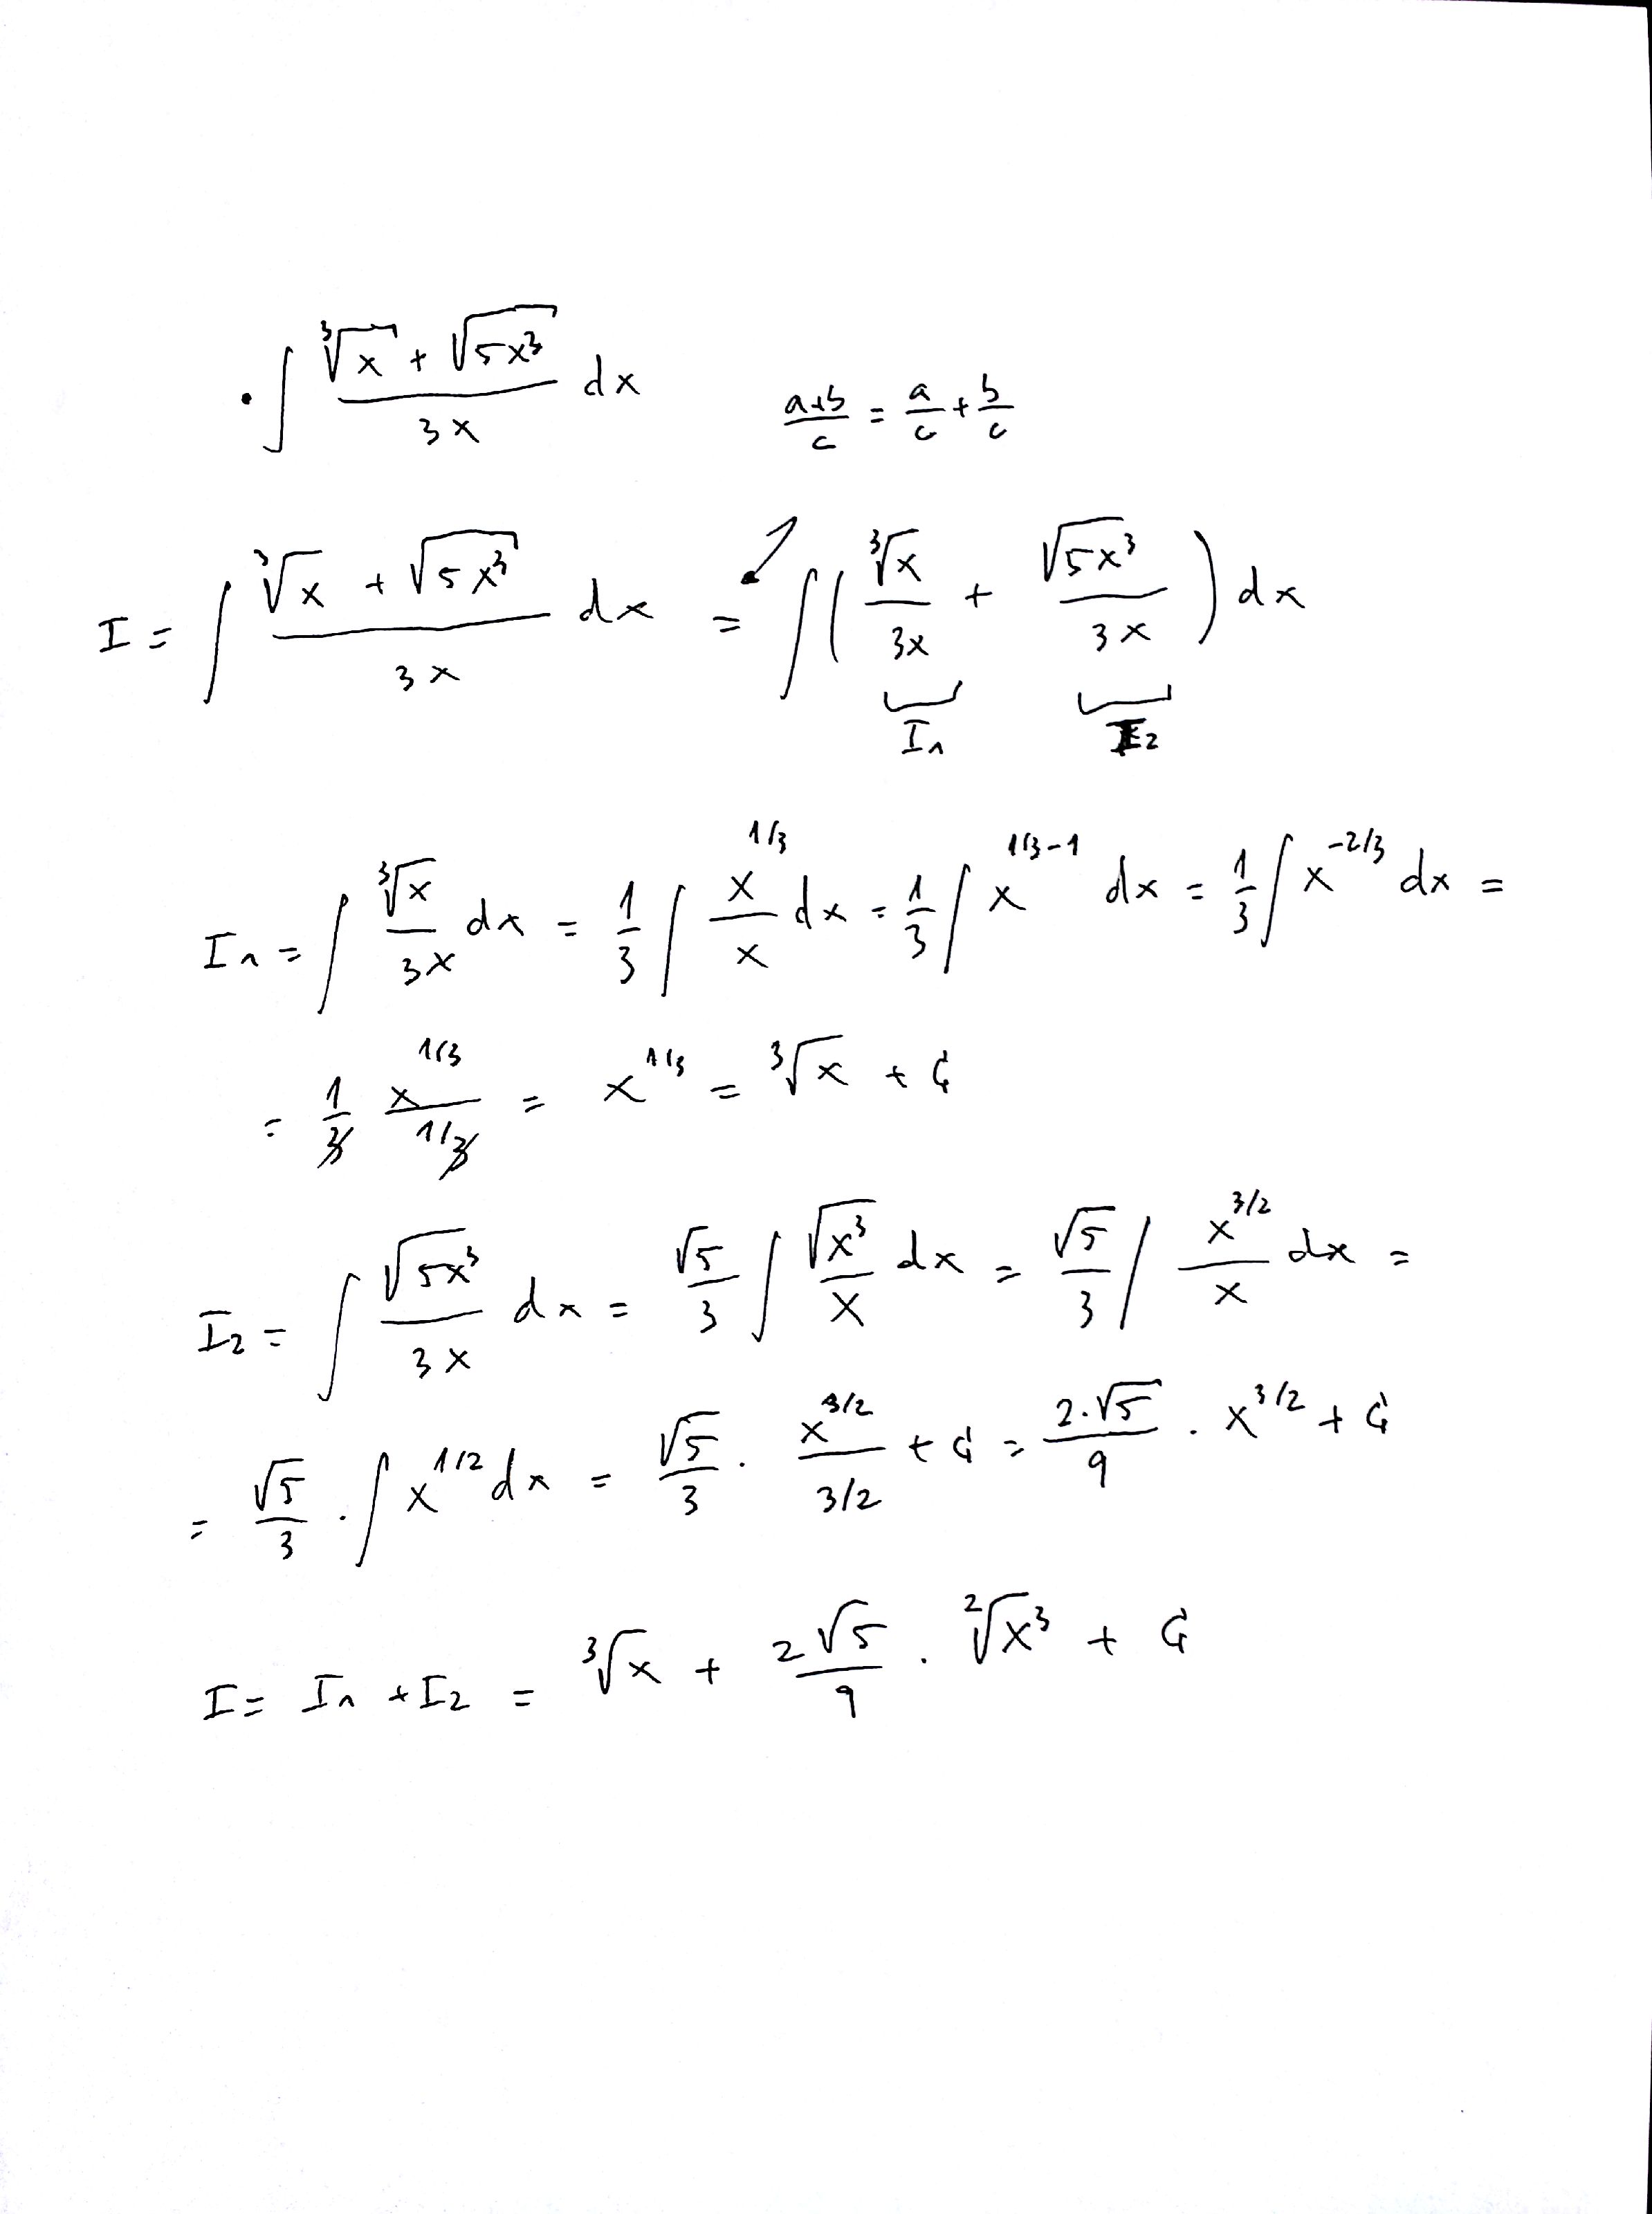 • ∫ (∛x + √(5x³))/(3x) dx    (a+b)/c = a/c + b/c
I = ∫ (∛x + √(5x³))/(3x) dx = ∫ ( ∛x/(3x) + √(5x³)/(3x) ) dx
I₁    I₂
I₁ = ∫ ∛x/(3x) dx = 1/3 ∫ x^(1/3)/x dx = 1/3 ∫ x^(1/3-1) dx = 1/3 ∫ x^(-2/3) dx =
= 1/3 x^(1/3)/(1/3) = x^(1/3) = ∛x + C
I₂ = ∫ √(5x³)/(3x) dx = √5/3 ∫ √(x³)/x dx = √5/3 ∫ x^(3/2)/x dx =
= √5/3 · ∫ x^(1/2) dx = √5/3 · x^(3/2)/(3/2) + C = 2·√5/9 · x^(3/2) + C
I = I₁ + I₂ = ∛x + 2√5/9 · ²√(x³) + C